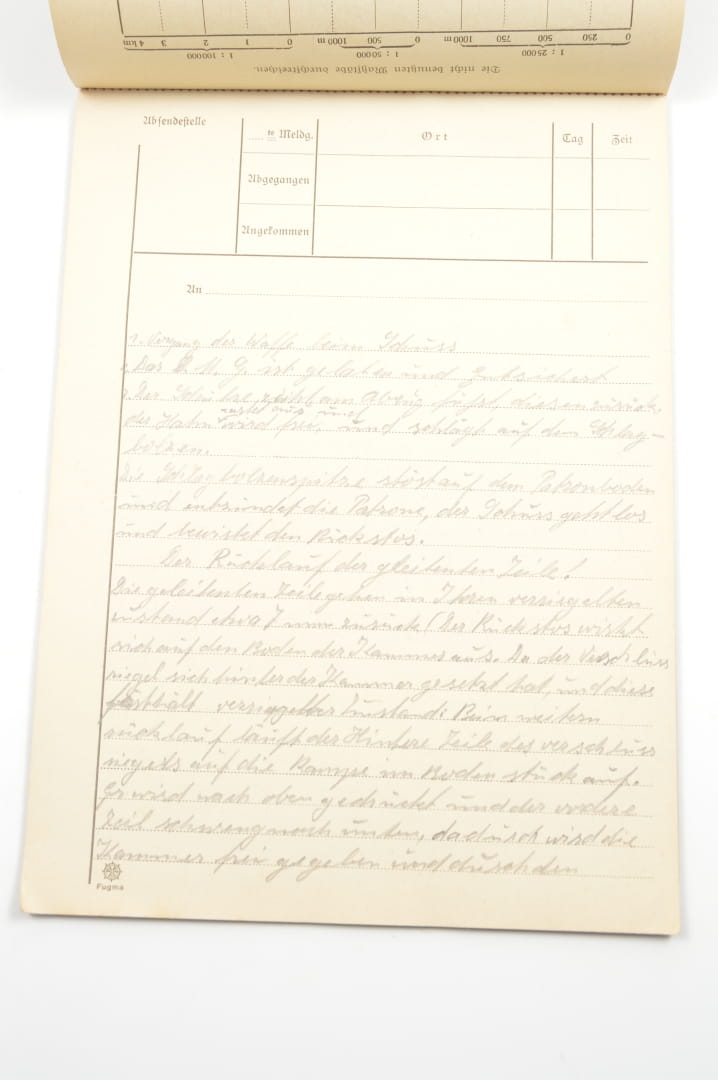 4 km 3 2 1 0 1000 m 500 0 1000 m 750 500 250 0
1 : 100000 1 : 50000 1 : 25000
Die nicht benutzten Maßstäbe durchstreichen.
Absendestelle
te Meldg. Ort Tag Zeit
Abgegangen
Angekommen
An
Vorgang der Waffe beim Schuss
Das M. G. ist geladen und Entsichert
Der Schütze am Abzug diesen zurück,
rastet aus und
der Hahn wird frei, und schlägt auf dem Schlag-
bolzen.
Die Schlagbolzenspitze stöst auf dem Patronboden
und entzündet die Patrone, der Schuss geht los
und bewirktet den Rückstos.
Der Rücklauf der gleitenten Teile!
Die geleitenten Teile gehen in Ihren verriegelten
zustand etwa 7 mm zurück (Der Rückstos wirkt
sich auf den Boden der Kammer aus. Da der Verschluss
riegel sich hinter der Kammer gesetzt hat, und diese
festhält verriegelter Zustand: Beim weitern
rücklauf läuft der Hintere Teile des verschluss
riegels auf die Rampe im Boden stück auf.
Er wird nach oben gedrückt und der vordere
Teil schwengt nach unten, dadurch wird die
Kammer frei gegeben und durch den
Fugma